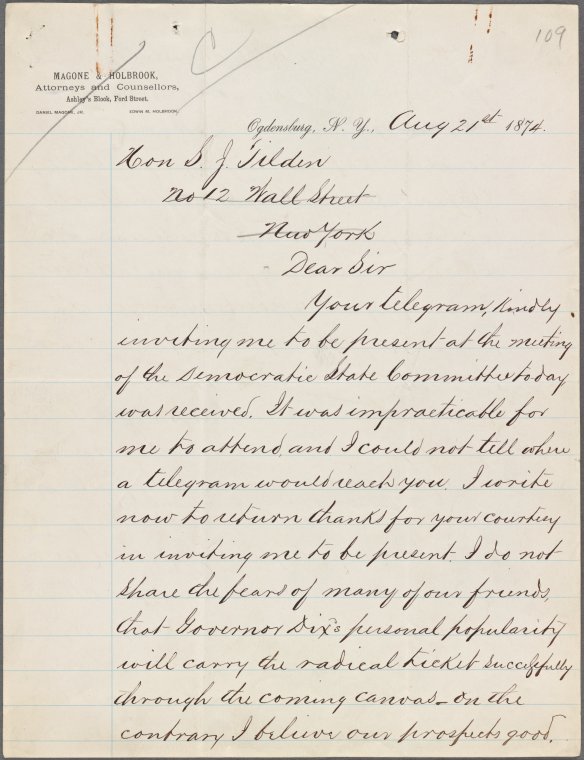 109
MAGONE & HOLBROOK,
Attorneys and Counsellors,
Ashley's Block, Ford Street.
DANIEL MAGONE, JR. EDWIN M. HOLBROOK.
Ogdensburg, N. Y., Aug 21st 1874.
Hon S. J. Tilden
No 12 Wall Street
New York
Dear Sir
Your telegram, kindly
inviting me to be present at the meeting
of the Democratic State Committee today
was received. It was impracticable for
me to attend, and I could not tell where
a telegram would reach you. I write
now to return thanks for your courtesy
in inviting me to be present. I do not
share the fears of many of our friends,
that Governor Dix's personal popularity
will carry the radical ticket successfully
through the coming canvas - on the
contrary I believe our prospects good.